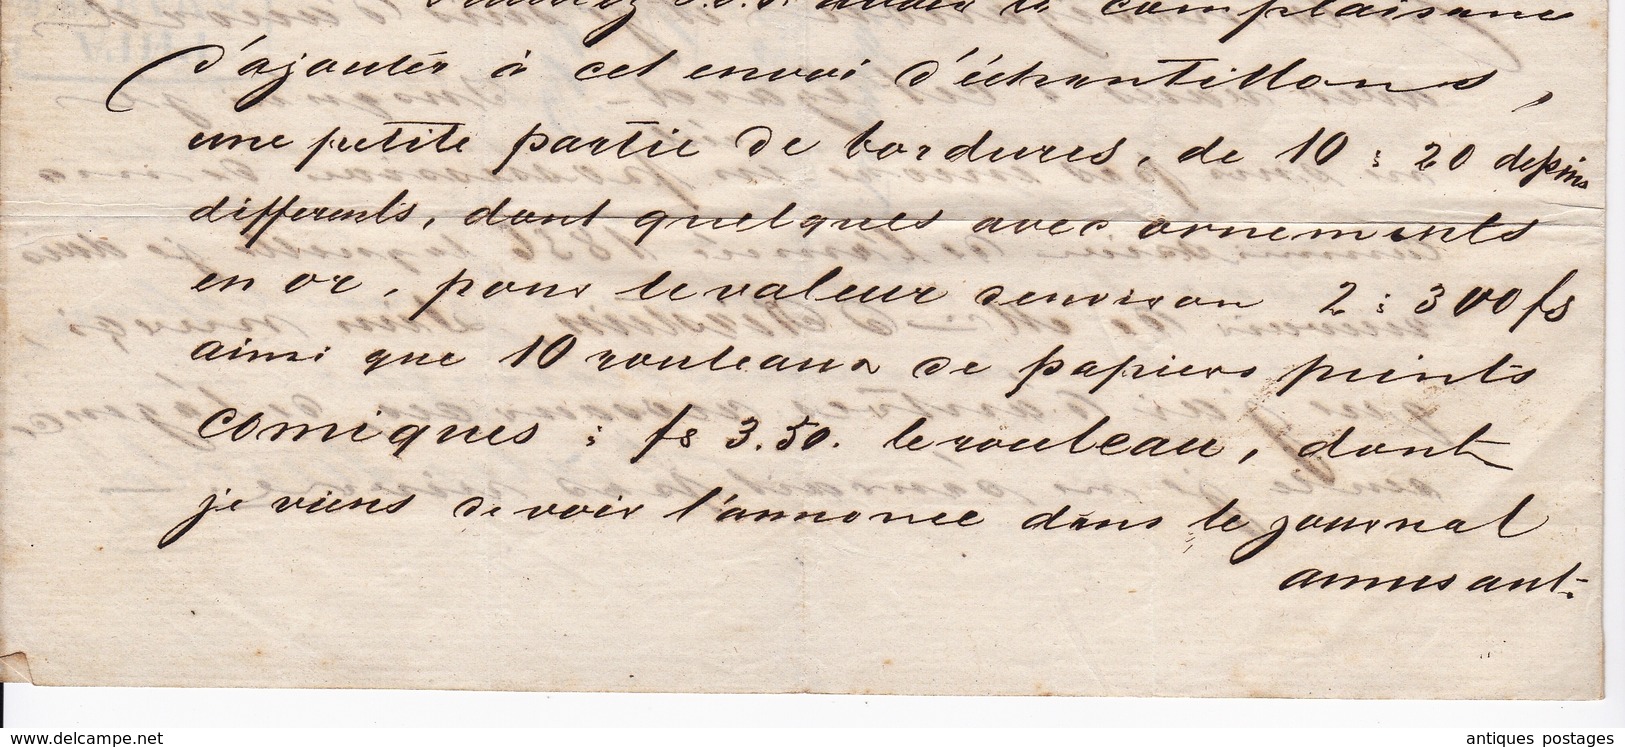 avoir la complaisance
d'ajouter à cet envoi d'échantillons,
une petite partie de bordures, de 10 : 20 dessins
différents, dont quelques avec ornements
en or, pour le valeur d'environ 2 : 300 fs
ainsi que 10 rouleaux de papiers peints
comiques : fs 3.50. le rouleau, dont
je viens de voir l'annonce dans le journal
amusant.
www.delcampe.net
antiques postages